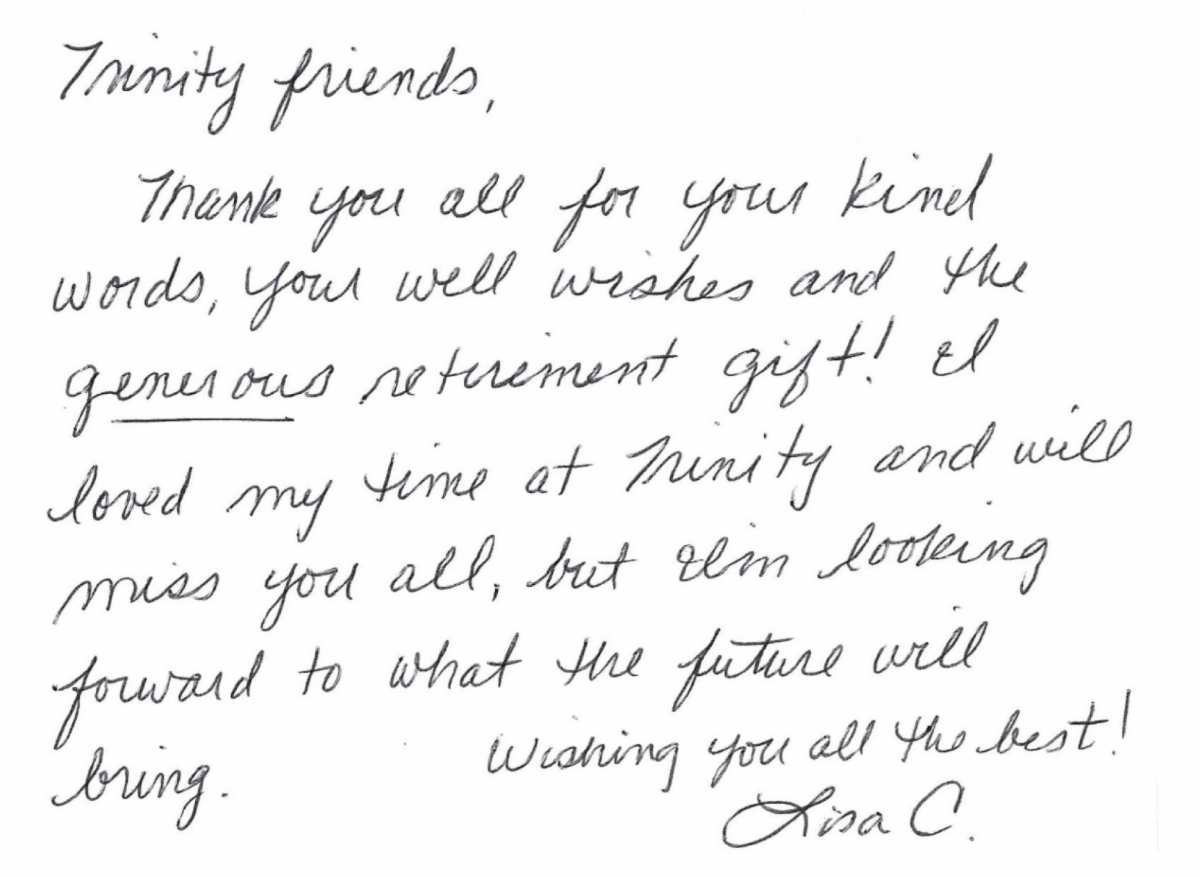 Trinity friends,
Thank you all for your kind
words, your well wishes and the
generous retirement gift! I
loved my time at Trinity and will
miss you all, but I'm looking
forward to what the future will
bring.
Wishing you all the best!
Lisa C.